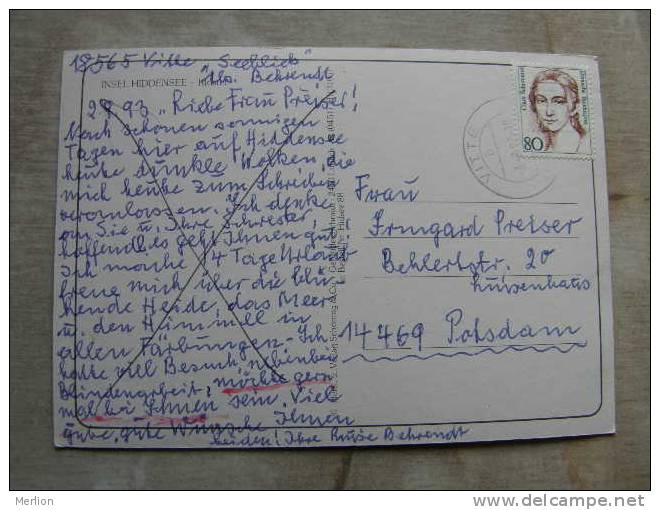 18565 Vitte „Seeblick"
INSEL HIDDENSEE -
b. Behrendt
2.9.93 „Liebe Frau Preiser!
Nach schönen sonnigen
Tagen hier auf Hiddensee
heute dunkle Wolken, die
mich heute zum Schreiben
veranlassen. Ich denke
an Sie u. Ihre Schwester,
hoffentl. es geht Ihnen gut!
Ich mache 14 Tage Urlaub
freue mich über die blü-
hende Heide, das Meer
u. den Himmel in
allen Färbungen. Ich
hatte viel Besuch, nebenbei
Blindenarbeit, möchte gern
mal bei Ihnen sein. Viele
gute, gute Wünsche Ihnen
beiden! Ihre Behrendt
Clara Schumann
Deutsche Bundespost
80
VITTE
Frau
Irmgard Preiser
Behlertstr. 20
Luisenhaus
14469 Potsdam
Merlion
http://www.delcampe.net